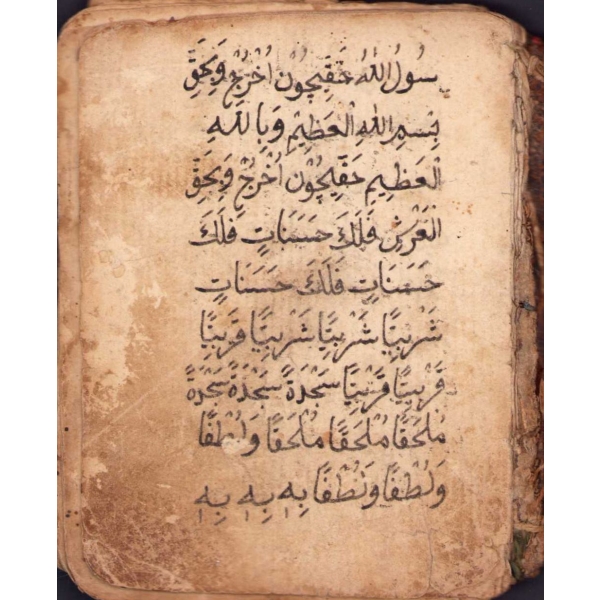 سُولُ اللهُ حَقِيچُون اُخْرُجْ وَبِحَقِّ
بِسْمِ اللهِ الْعَظِيْمِ وَبِاللهِ
الْعَظِيمِ حَقِيچُوْن اُخْرُجْ وَبِحَقِّ
الْعَرْشِ فَلَكَ حَسَنَاتٍ فَلَكَ
حَسَنَاتٍ فَلَكَ حَسَنَاتٍ
شَرْبِيًّا شَرْبِيًّا شَرْبِيًّا قَرْبِيًّا
قَرْبِيًّا قَرْبِيًّا سَجْدَةً سَجْدَةً سَجْدَةً
مُلْحَقًا مُلْحَقًا مُلْحَقًا وَلُطْفًا
وَلُطْفًا وَلُطْفًا بِهِ بِهِ بِهِ